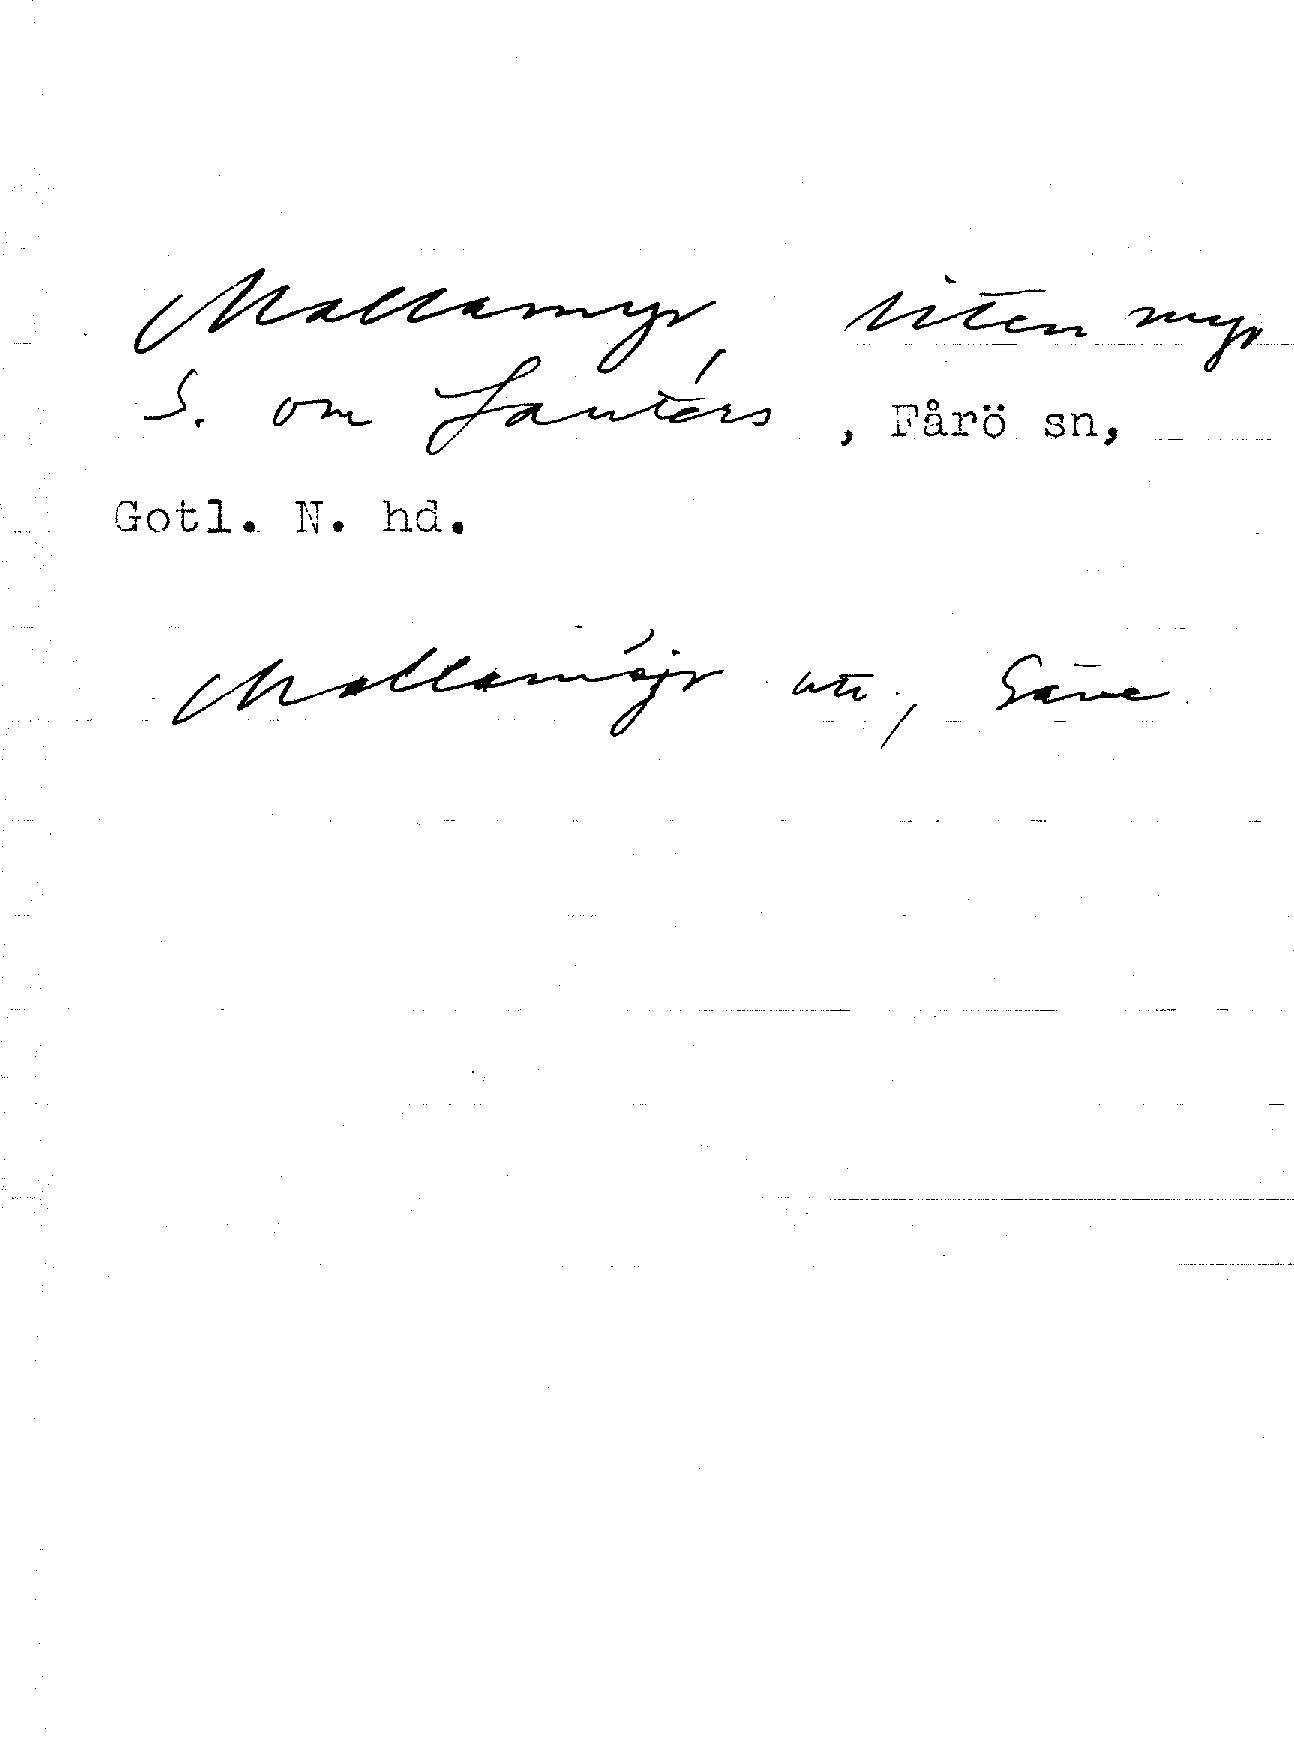 Mallamyr, liten myr
S. om Lauters, Fårö sn,
Gotl. N. hd.
Mallamöjr utt., Säve